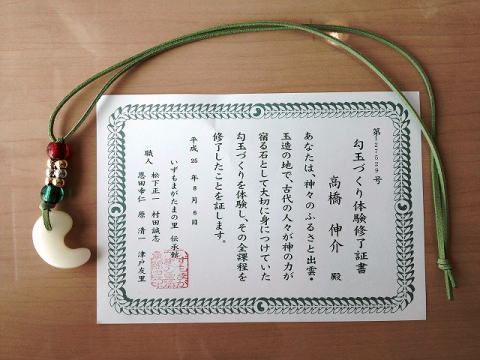 第127529号
勾玉づくり体験修了証書
高橋 伸介 殿
あなたは、神々のふるさと出雲・
玉造の地で、古代の人々が神の力が
宿る石として大切に身につけていた
勾玉づくりを体験し、その全課程を
修了したことを証します。
平成 25 年 8 月 6 日
いずもまがたまの里 伝承館
職人 松下正一 村田誠志
恩田幸仁 原 清一 津戸友里